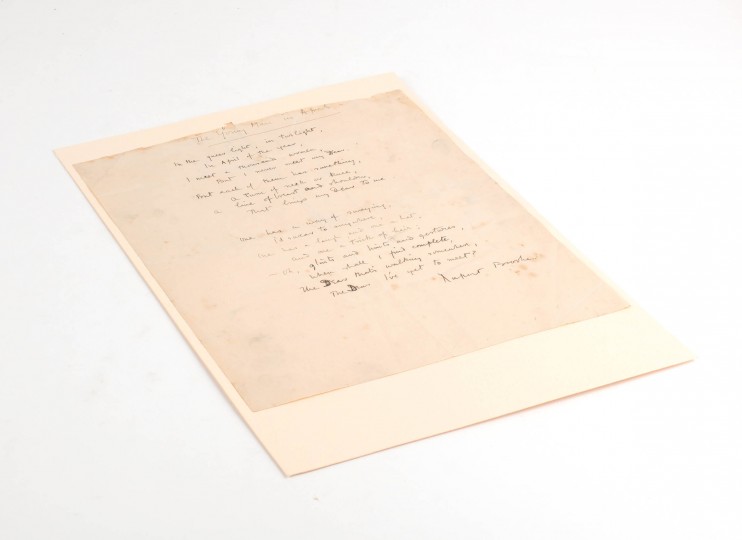 The Young Man in April
In the queer light, in twilight,
In April of the year,
I meet a thousand women,
But I never meet my Dear.
But each of them has something,
A turn of neck or knee,
a line of breast or shoulder,
That brings my Dear to me.
One has a way of swaying,
I'd swear to anywhere;
One has a laugh, and one a hat,
and one a trick of hair;
— Oh, glints and hints and gestures,
When shall I find complete,
The Dear that's walking somewhere,
The Dear I've yet to meet?
Rupert Brooke